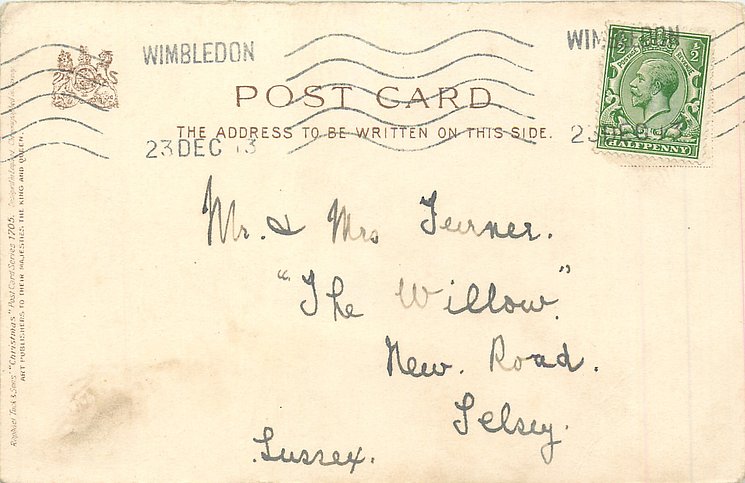 WIMBLEDON
WIMBLEDON
POST CARD
THE ADDRESS TO BE WRITTEN ON THIS SIDE.
23 DEC 13
23 DEC 13
½ ½
HALFPENNY
Mr. & Mrs Turner.
"The Willow"
New. Road.
Selsey.
Sussex.
Raphael Tuck & Sons' "Christmas" Post Card Series 1705.
ART PUBLISHERS TO THEIR MAJESTIES THE KING AND QUEEN.